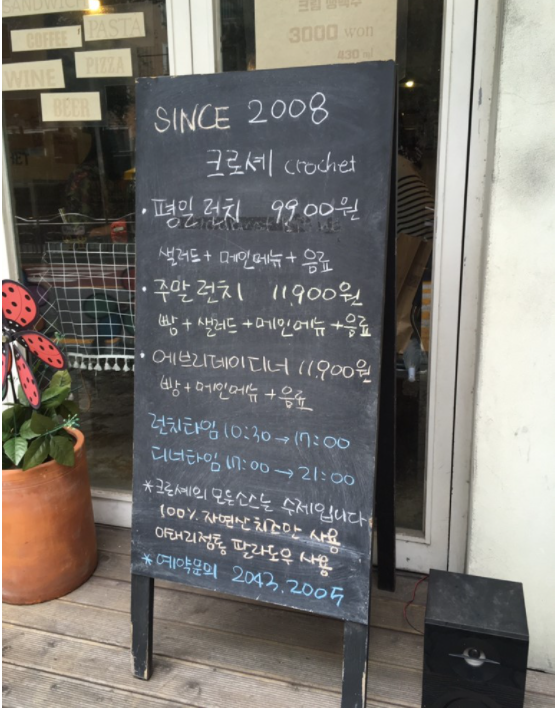 SANDWICH
COFFEE
PASTA
WINE
PIZZA
BEER
3000 won
430 ml
SINCE 2008
크로셰 crochet
• 평일런치 9,900원
샐러드 + 메인메뉴 + 음료
• 주말런치 11,900원
빵 + 샐러드 + 메인메뉴 + 음료
• 에브리데이디너 11,900원
빵 + 메인메뉴 + 음료
런치타임 10:30 → 17:00
디너타임 17:00 → 21:00
* 크로셰의 모든소스는 수제입니다
100% 자연산치즈만 사용
이태리정통 팔라도우 사용
* 예약문의 2043.2005